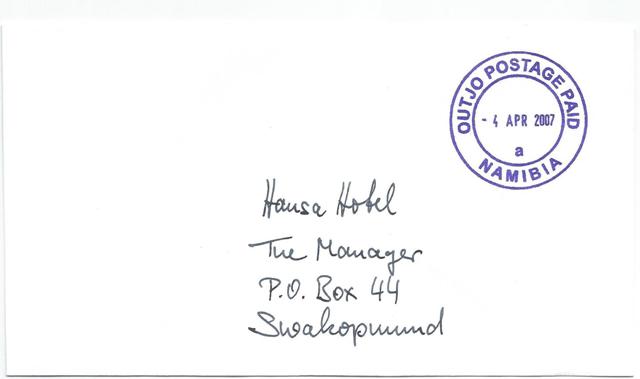 OUTJO POSTAGE PAID
- 4 APR 2007
a
NAMIBIA
Hansa Hotel
The Manager
P.O. Box 44
Swakopmund